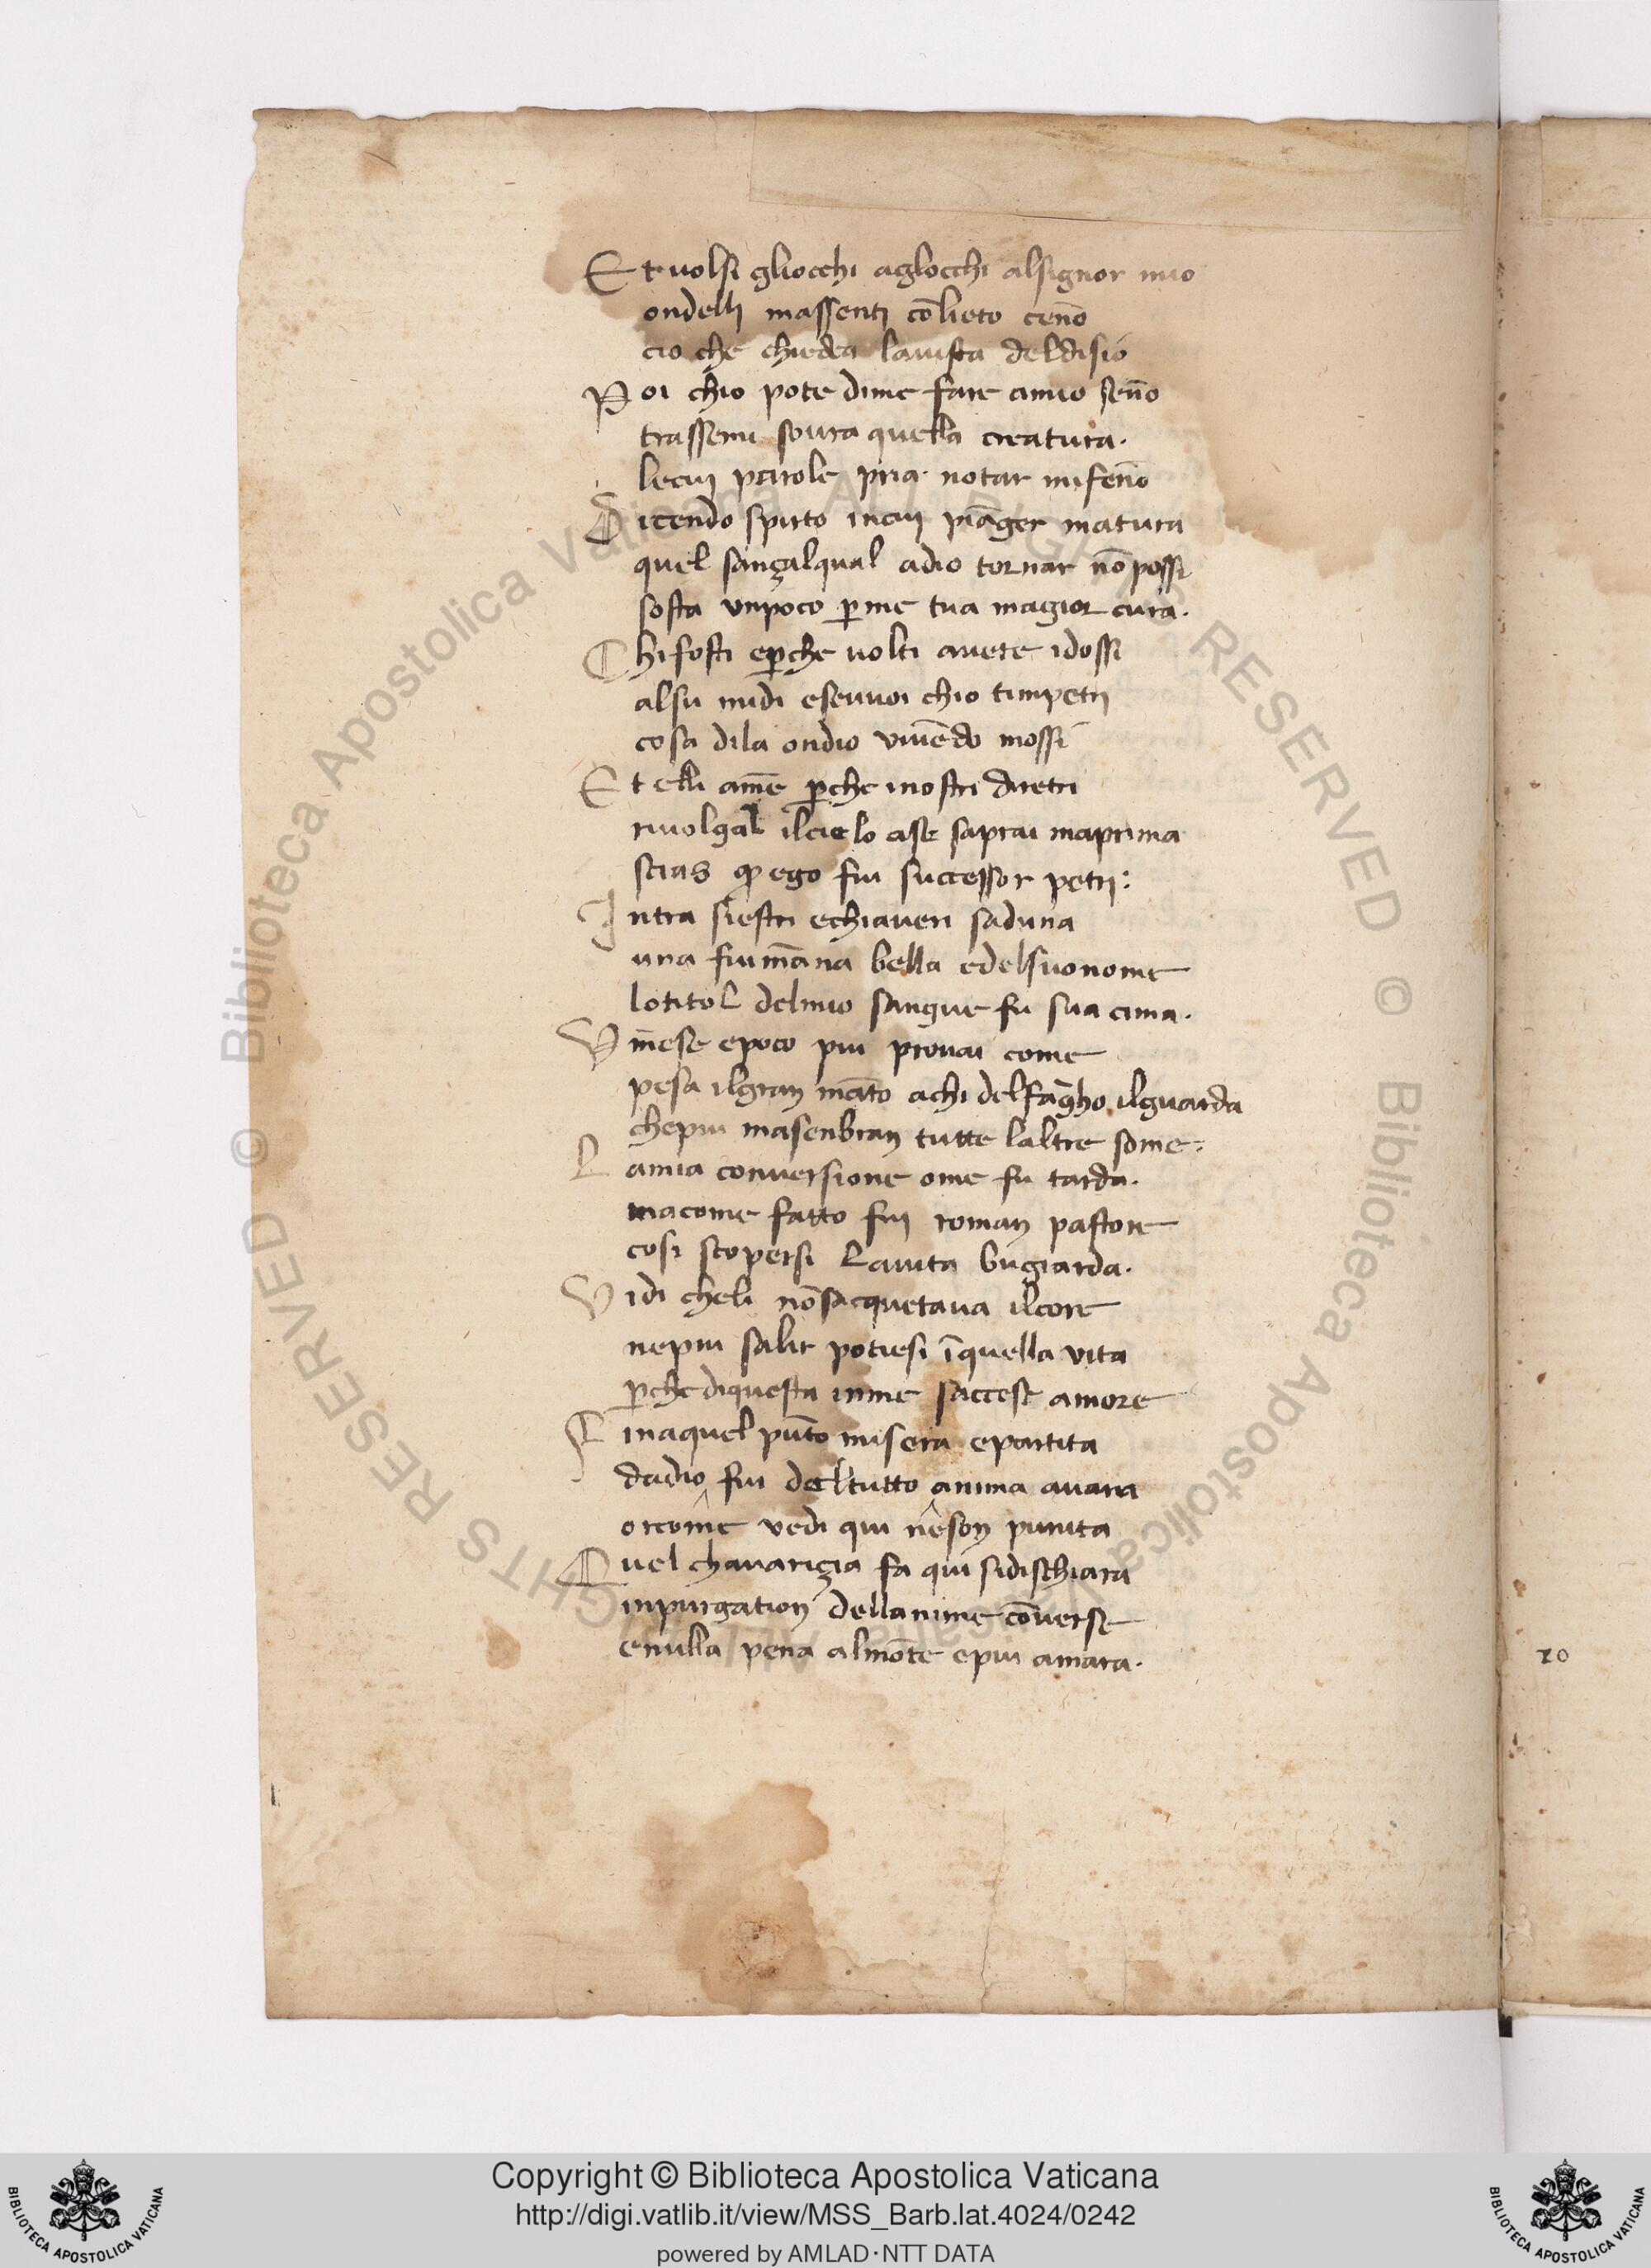 Et uolsi gliocchi aglocchi alsignor mio
ondelli massenti cōlieto cenō
cio che chiedea lauista deldisio
Poi chio pote dime fare amio sēno
trassemi soura quella creatura.
lecui parole pria notar mi fēno
Dicendo spirto incui piāger matura
quel sançalqual adio tornar nō possi
sosta vnpoco ꝑme tua magior cura.
Chi fosti eꝑche uolti auete idossi
alsu midi eseuuoi chio timpetri
cosa dila ondio viuēdo mossi
Et elli amē ꝑche inostri diretri
riuolgal ilcielo ase saprai maprima
scias ꝙ ego fui successor petri:
Intra siestri echiaueri saduna
una fiumāna bella edelsuonome
lotitol delmio sangue fu sua cima.
Vmese epoco piu prouai come
pesa ilgran māto achi delfāgho ilguarda
chepiu masenbran tutte laltre some.
Lamia conuersione ome fu tarda.
macome fatto fui roman pastore
cosi scopersi Lauita bugiarda.
Vidi cheli nōsacquetaua ilcore
nepiu salir potiesi īquella vita
ꝑche diquesta inme saccese amore
Finaquel pūto misera epartita
dadio fui deltutto anima auara
orcome vedi qui neson punita
Quel chauariçia fa qui sidischiara
inpurgation dellanime cōuerse
enulla pena almōte epiu amara.
20
Copyright © Biblioteca Apostolica Vaticana
http://digi.vatlib.it/view/MSS_Barb.lat.4024/0242
powered by AMLAD·NTT DATA
BIBLIOTECA APOSTOLICA VATICANA
BIBLIOTECA APOSTOLICA VATICANA
© Biblioteca Apostolica Vaticana ALL RIGHTS RESERVED © Biblioteca Apostolica Vaticana ALL RIGHTS RESERVED